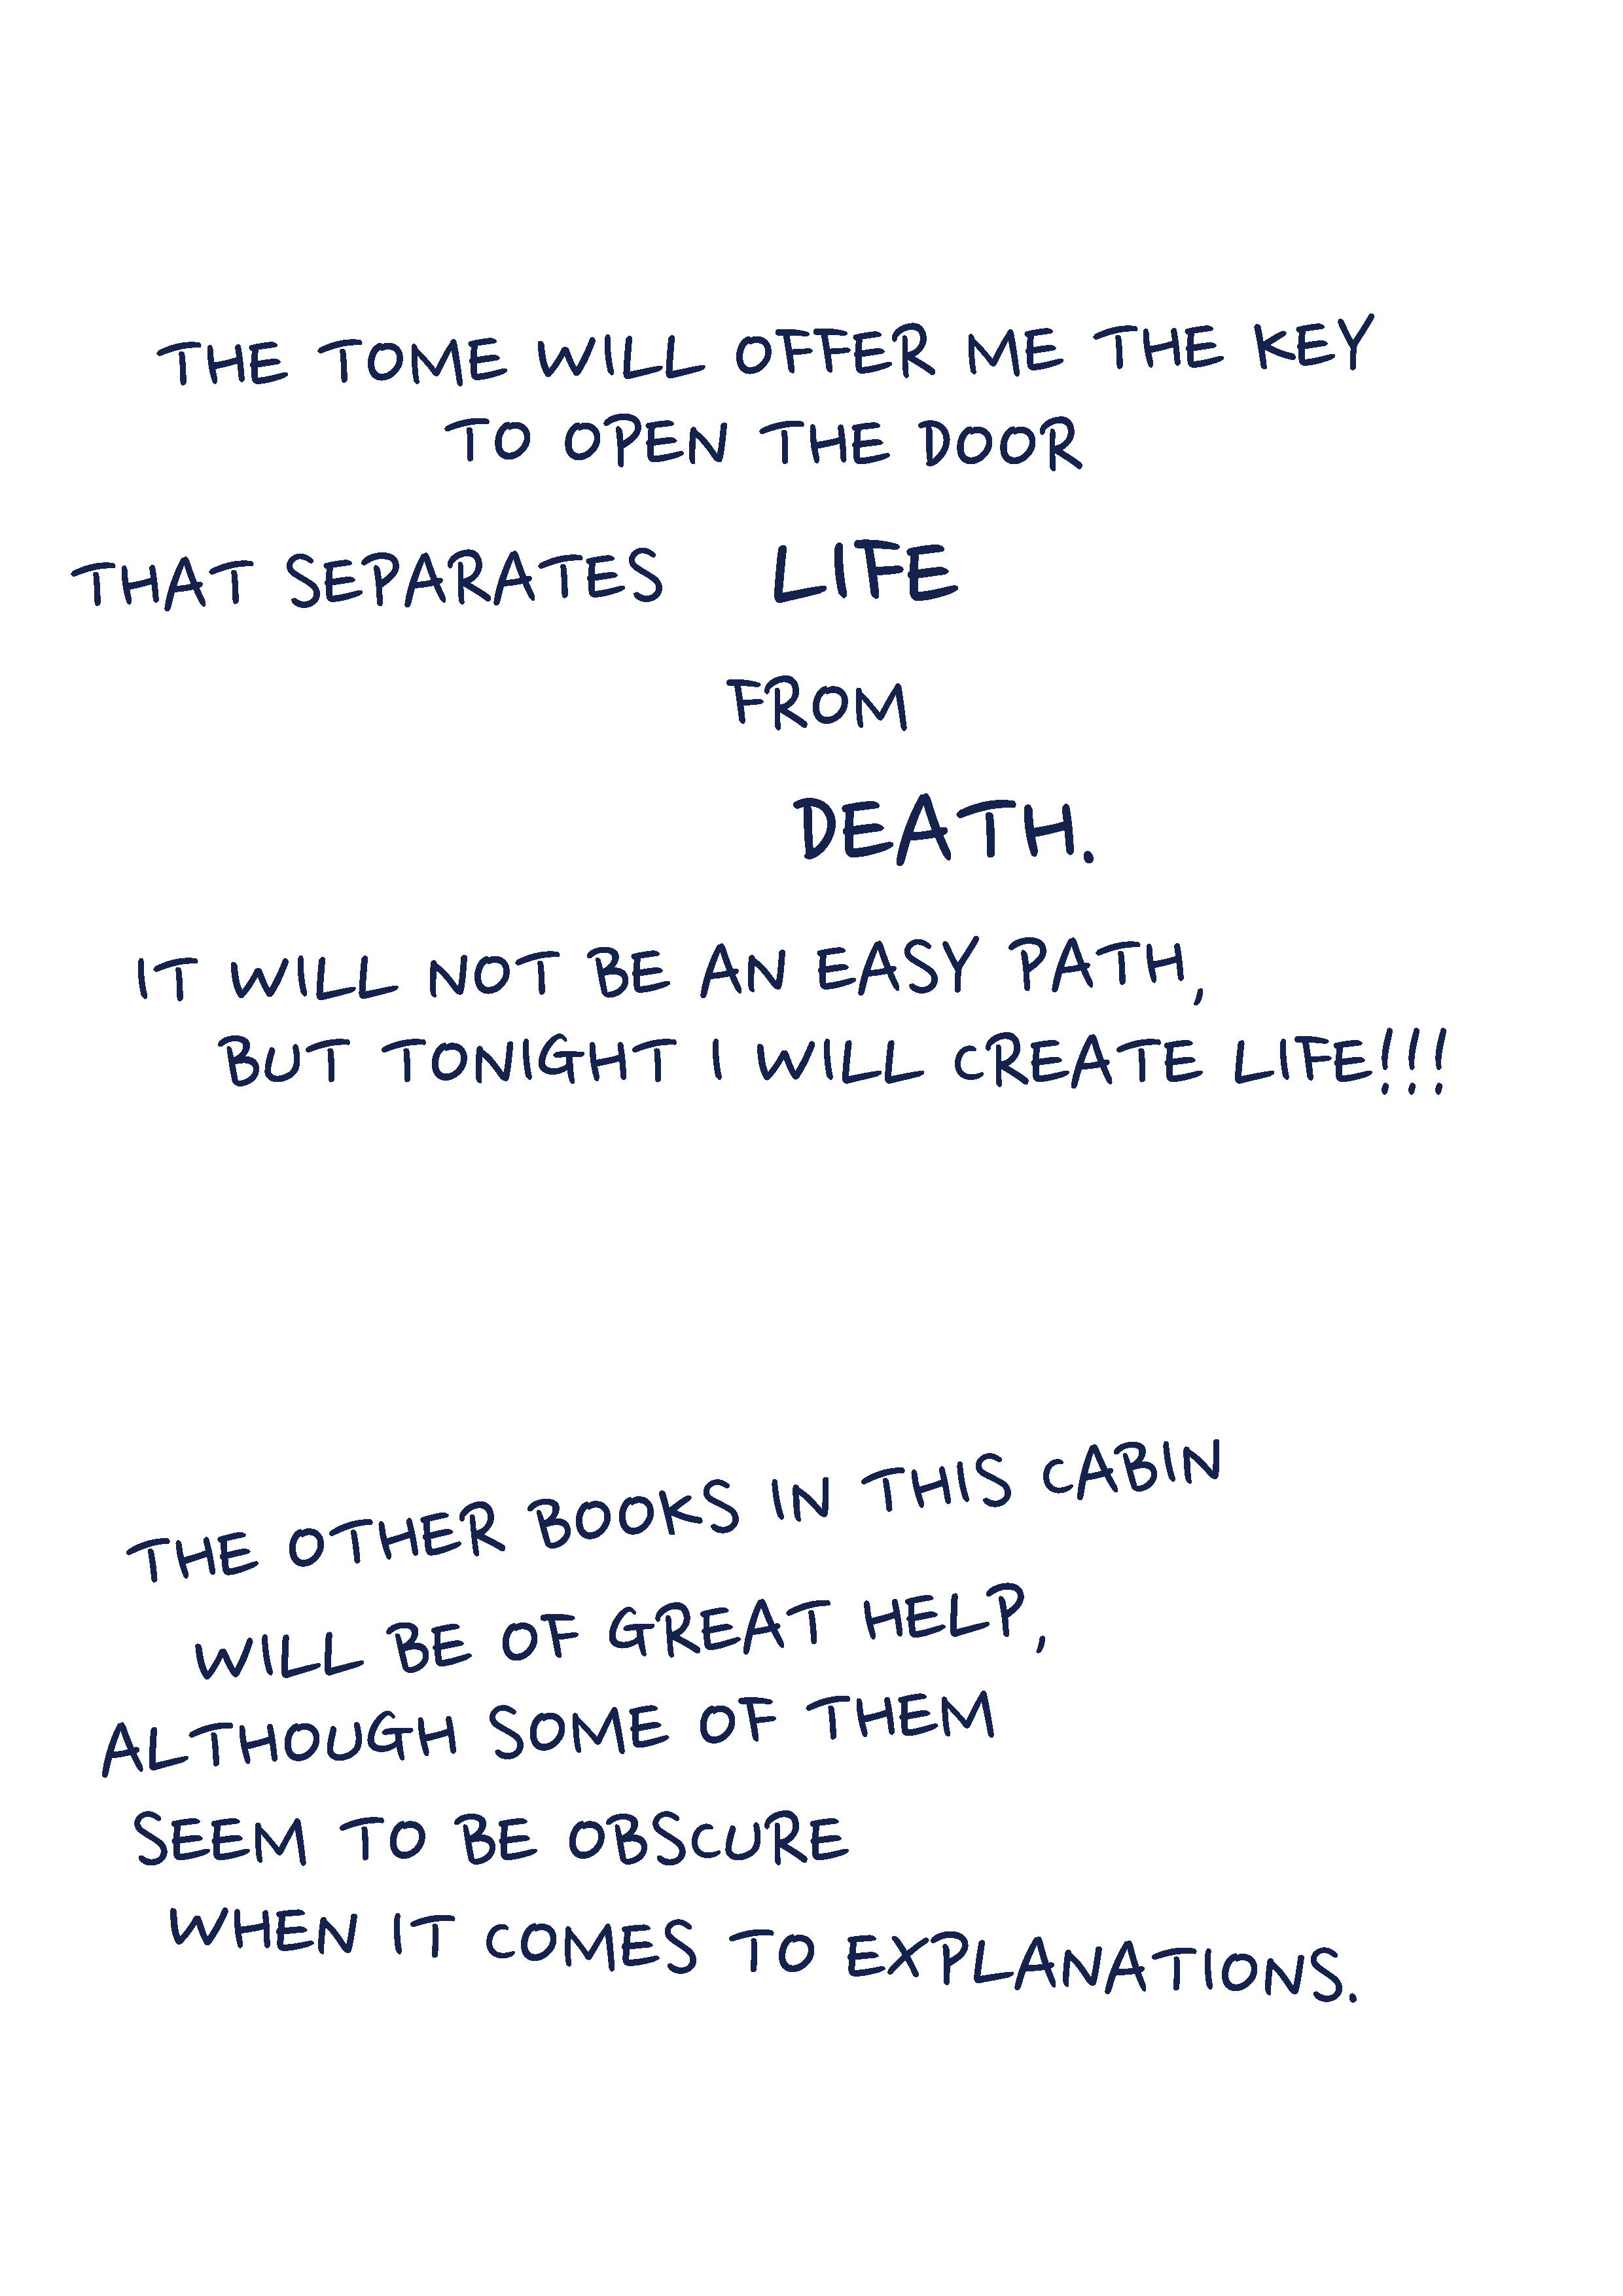 THE TOME WILL OFFER ME THE KEY
TO OPEN THE DOOR
THAT SEPARATES LIFE
FROM
DEATH.
IT WILL NOT BE AN EASY PATH,
BUT TONIGHT I WILL CREATE LIFE!!!
THE OTHER BOOKS IN THIS CABIN
WILL BE OF GREAT HELP,
ALTHOUGH SOME OF THEM
SEEM TO BE OBSCURE
WHEN IT COMES TO EXPLANATIONS.